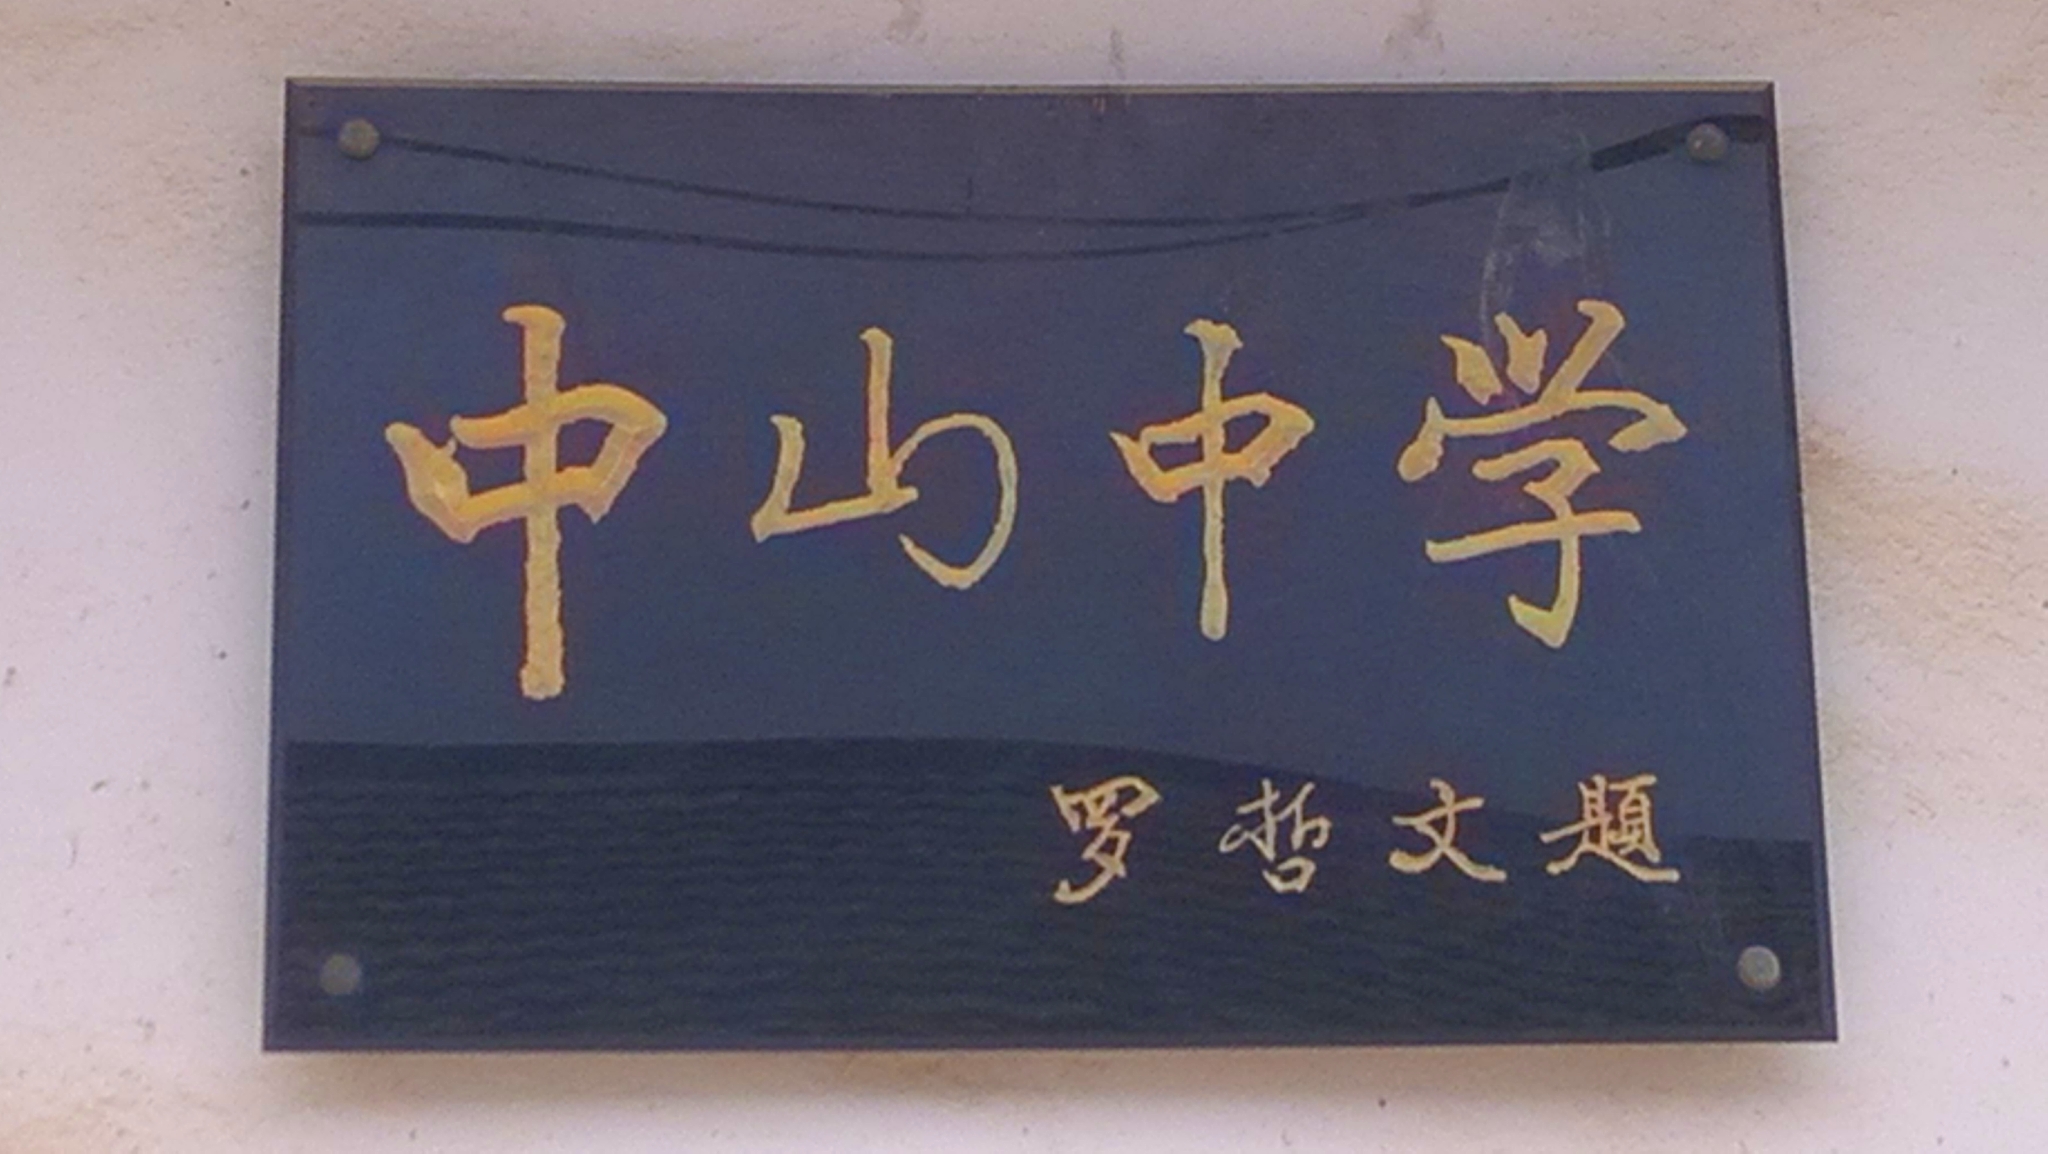 中山中学
罗哲文題